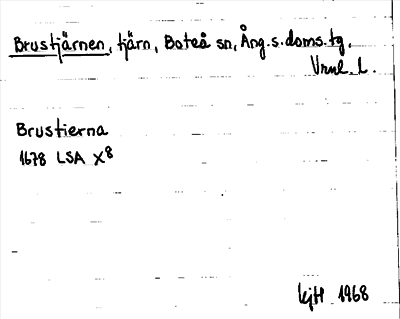 Brustjärnen, tjärn, Boteå sn, Ång.s.doms.tg.
Vrnl. L.
Brustierna
1678 LSA X8
kjH 1968